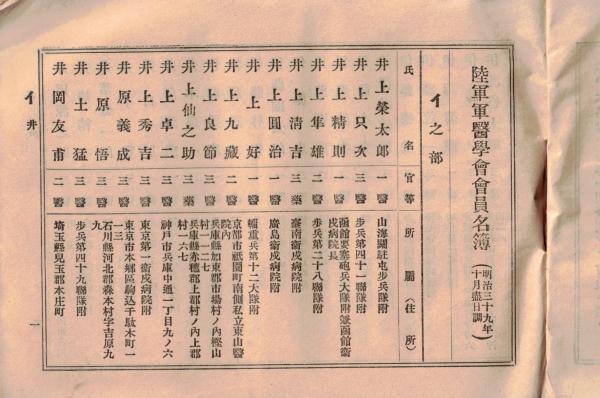 陸軍軍醫學會會員名簿（明治三十九年十月盡日調）
イ之部
氏名 官等 所屬（住所）
井上榮太郎 一醫 山海關駐屯步兵隊附
井上只次 三醫 步兵第四十一聯隊附
井上精則 一醫 函館要塞砲兵大隊附兼函館衞戍病院長
井上隼雄 二醫 步兵第二十八聯隊附
井上清吉 三藥 臺南衞戍病院附
井上圓治 一醫 廣島衞戍病院附
井上好 一醫 輜重兵第十二大隊附
井上九藏 二醫 京都市祇園町南側私立東山醫院內
井上良節 三醫 兵庫縣加東郡市場村ノ內樫山村一二七
井上仙之助 三藥 兵庫縣赤穗郡上郡村ノ內上郡村一六七
井上卓二 三醫 神戶市兵庫中通一丁目九ノ六
井上秀吉 三醫 東京第一衞戍病院附
井原義成 三醫 東京市本鄉區駒込千駄木町一一三
井原悟 三醫 石川縣河北郡森本村字吉原九
井土猛 三醫 步兵第四十九聯隊附
井岡友甫 二醫 埼玉縣兒玉郡本庄町
イ 井
一